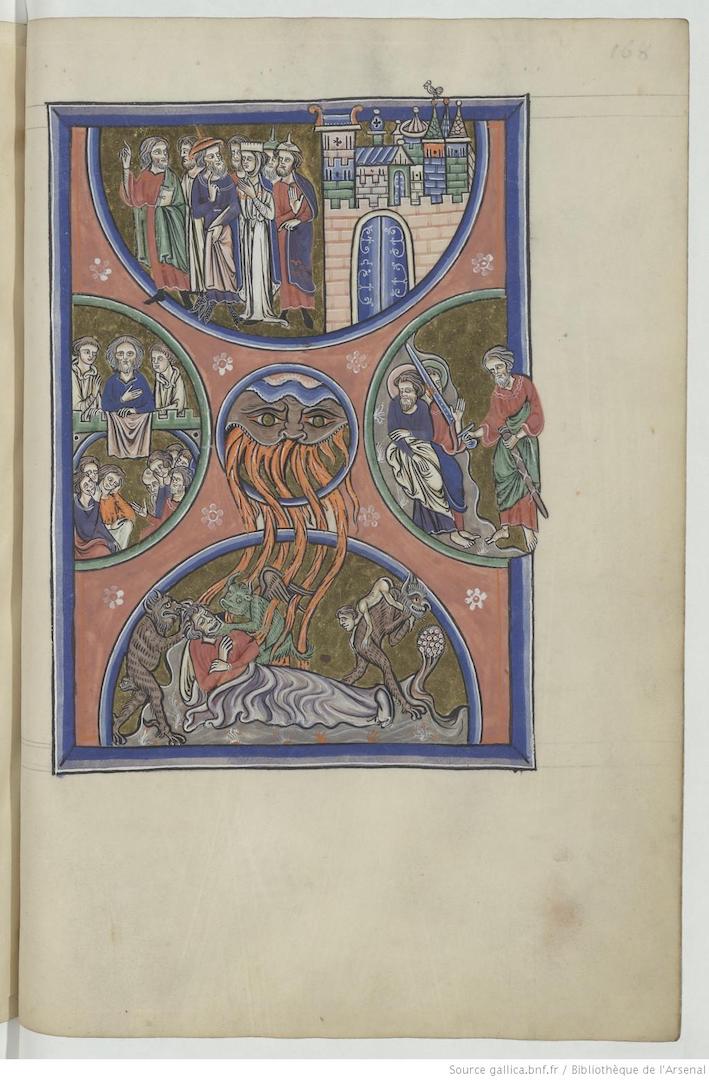 168
Source gallica.bnf.fr / Bibliothèque de l'Arsenal